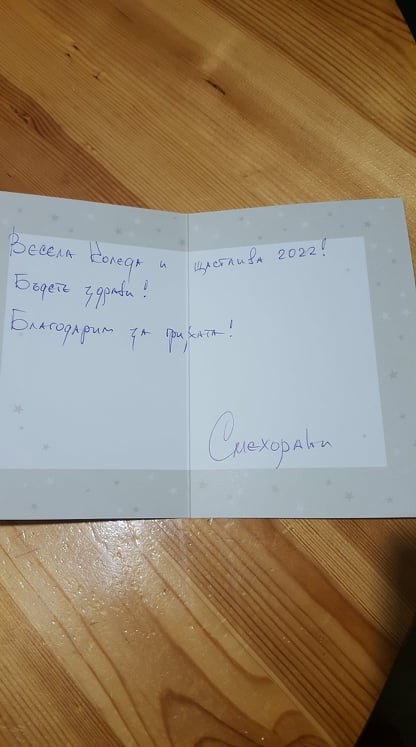 Весела Коледа и щастлива 2022!
Бъдете здрави!
Благодарим за грижата!
Смехорани